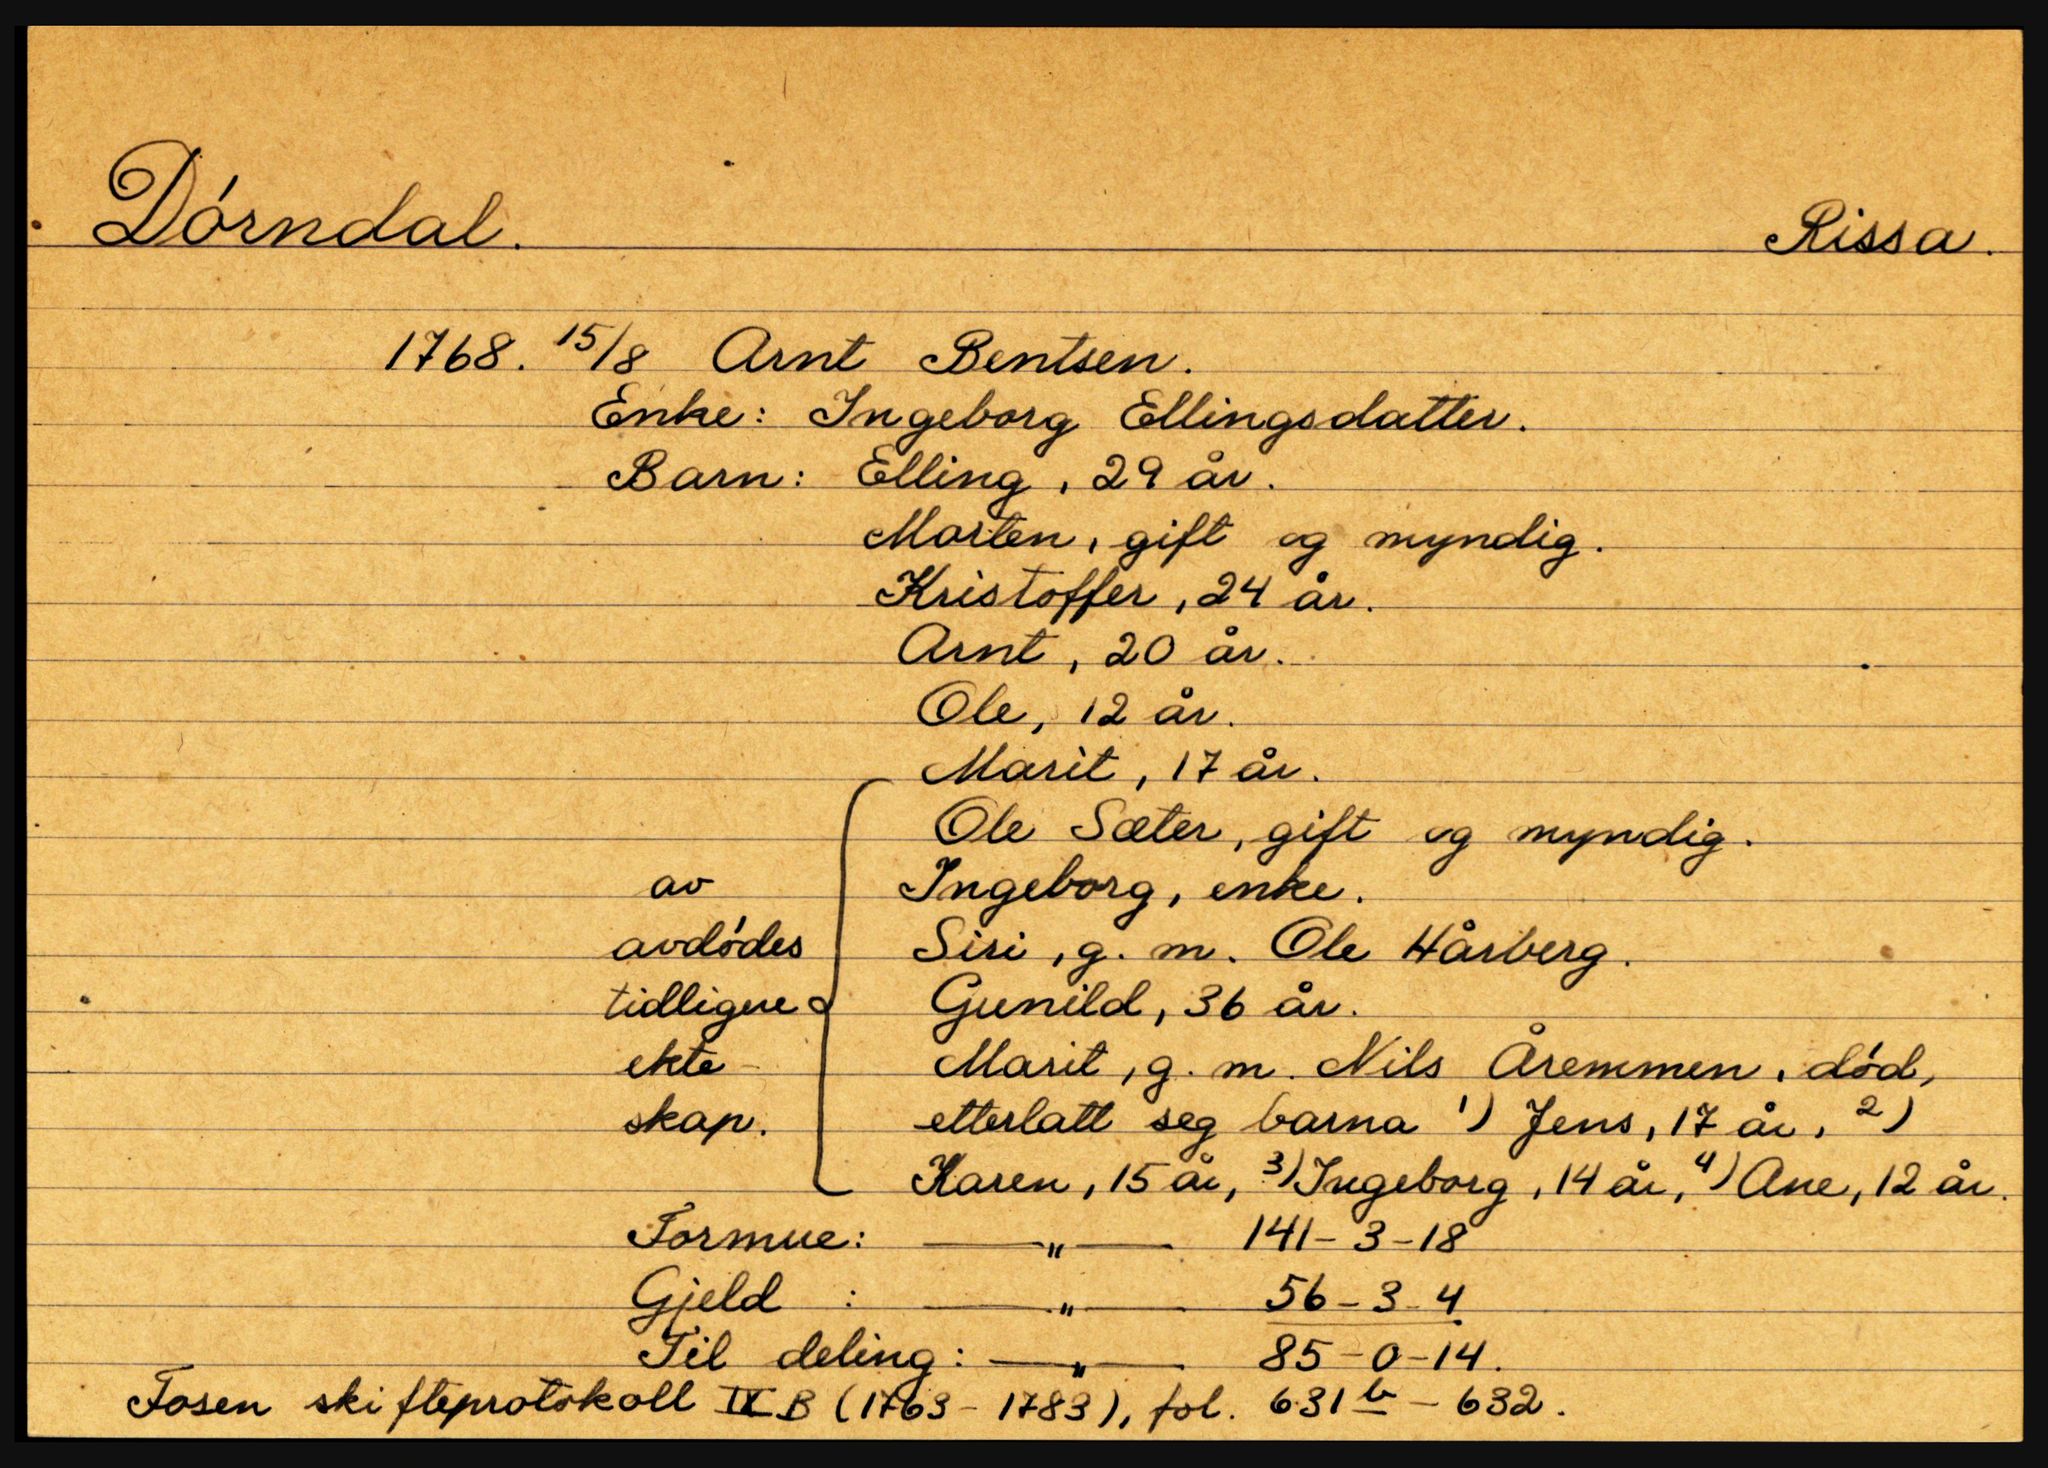 Dórndal. Rissa.
1768. 15/8 Arnt Bentsen.
Enke: Ingeborg Ellingsdatter.
Barn: Elling, 29 år.
Morten, gift og myndig.
Kristoffer, 24 år.
Arnt, 20 år.
Ole, 12 år.
Marit, 17 år.
Ole Sæter, gift og myndig.
av Ingeborg, enke.
avdódes Siri, g. m. Ole Hårberg.
tidligere Gunild, 36 år.
ekte- Marit, g. m. Nils Åremmen, dód,
skap. etterlatt seg barna 1) Jens, 17 år, 2)
Karen, 15 år, 3) Ingeborg, 14 år, 4) Ane, 12 år.
Formue: —„— 141-3-18
Gjeld : —„— 56-3-4
Til deling: —„— 85-0-14.
Fosen skifteprotokoll IX B (1763-1783), fol. 631b - 632.